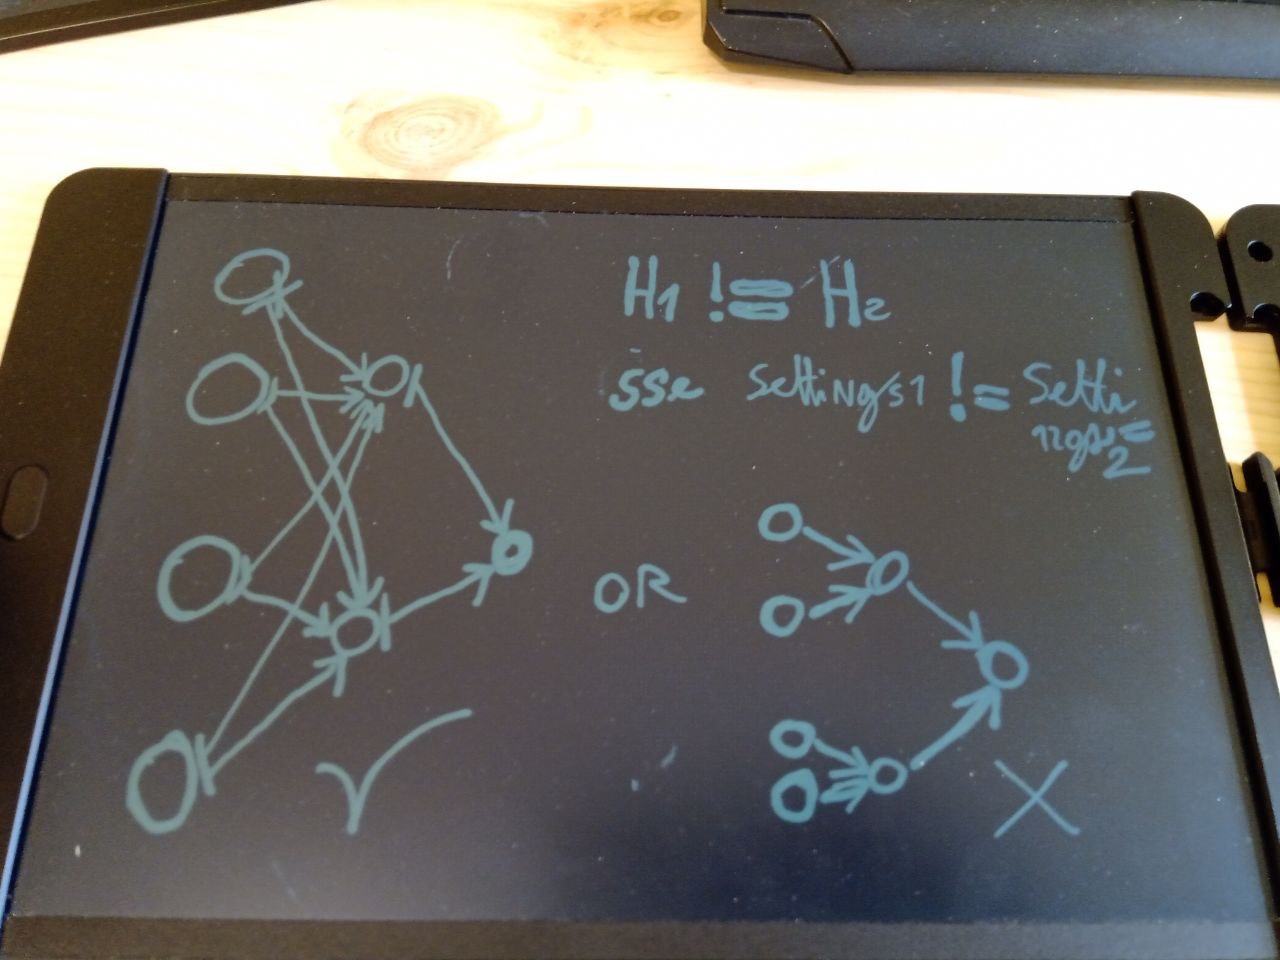 H1 != H2
sse settings1 != Setti
ngs
2
OR